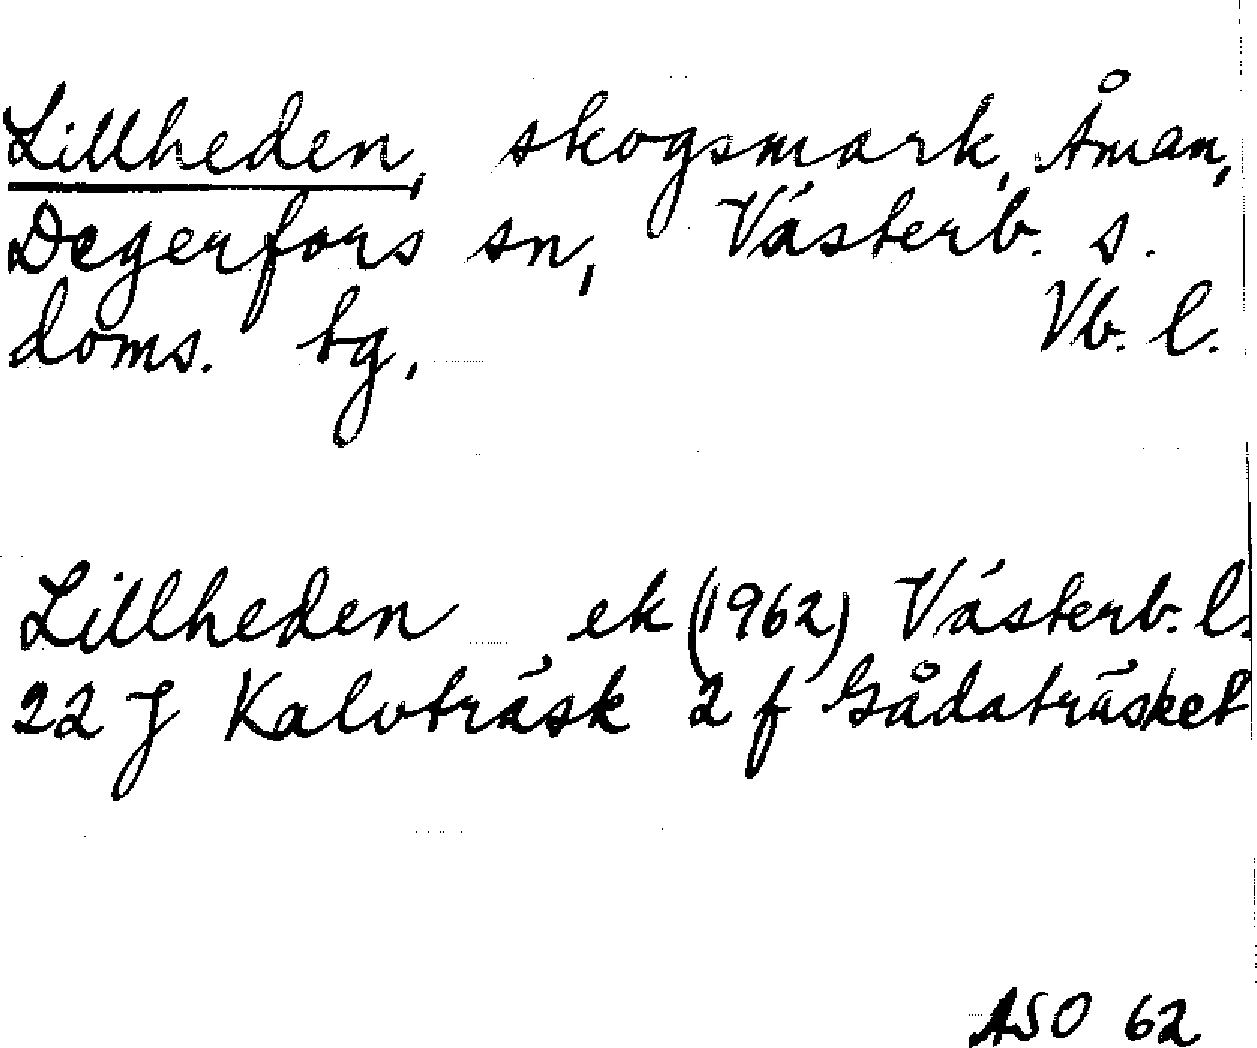 Lillheden, skogsmark, Åman,
Degerfors sn, Västerb. s.
doms. tg, Vb. l.
Lillheden ek (1962) Västerb. l.
22 J Kalvträsk 2 f Gådaträsket
ASO 62